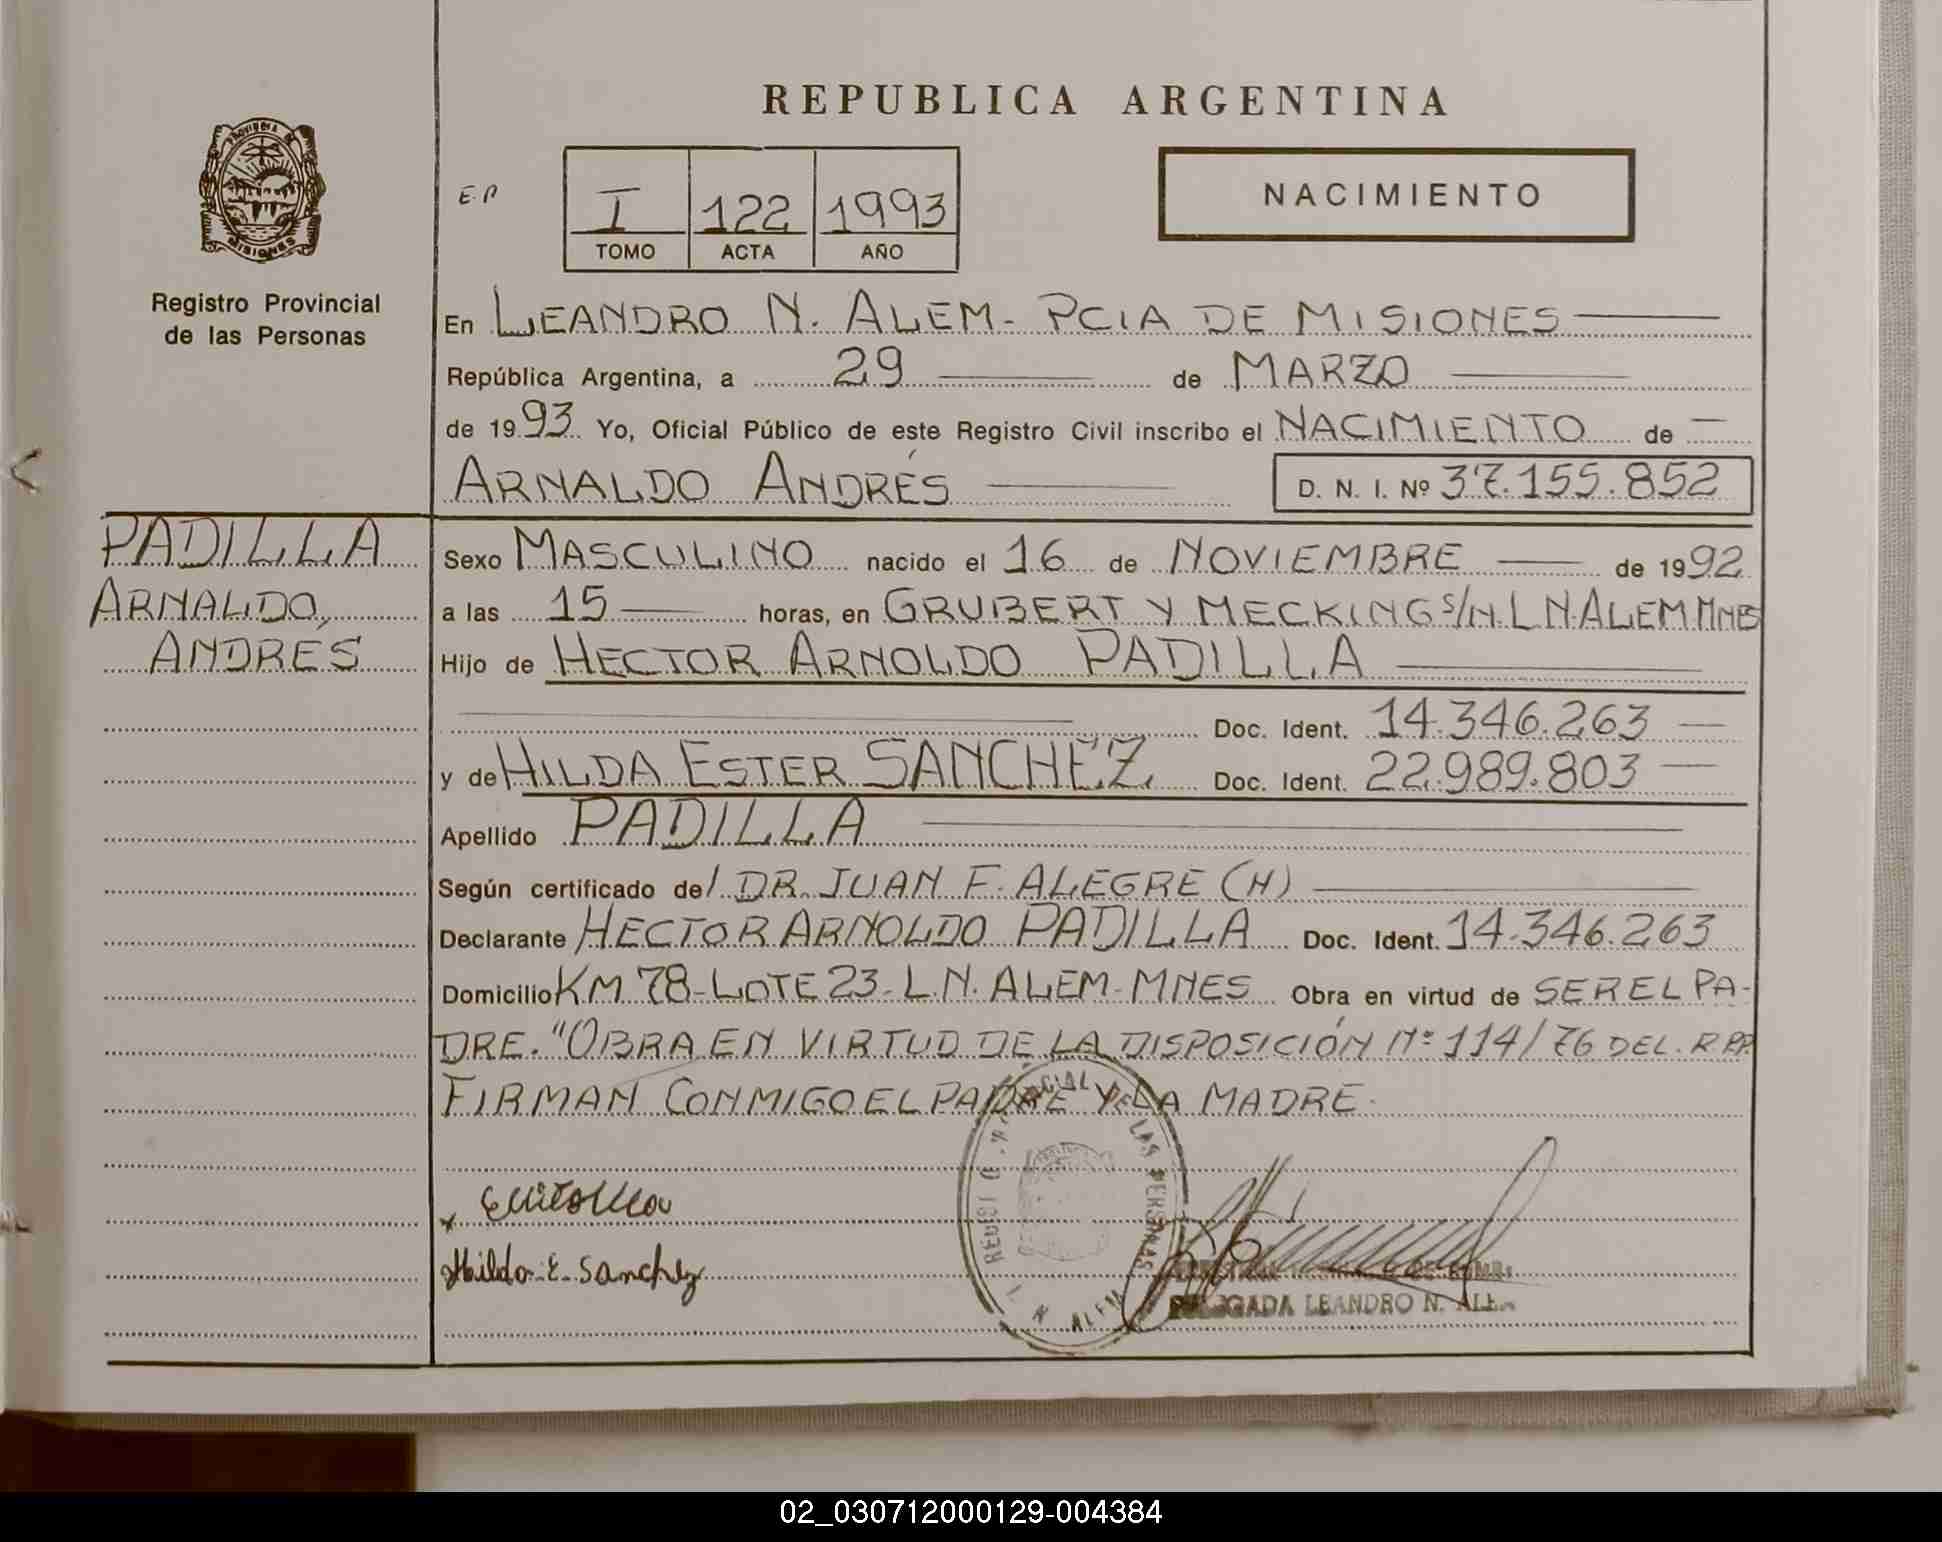 REPUBLICA ARGENTINA
PROVINCIA DE
MISIONES
E.P
I 122 1993
TOMO ACTA AÑO
NACIMIENTO
Registro Provincial
de las Personas
En LEANDRO N. ALEM - PCIA DE MISIONES
República Argentina, a 29 de MARZO
de 1993 Yo, Oficial Público de este Registro Civil inscribo el NACIMIENTO de
ARNALDO ANDRÉS D. N. I. Nº 37.155.852
PADILLA
ARNALDO,
ANDRES
Sexo MASCULINO nacido el 16 de NOVIEMBRE de 1992
a las 15 horas, en GRUBERT Y MECKING S/N. L N. ALEM MNES
Hijo de HECTOR ARNOLDO PADILLA
Doc. Ident. 14.346.263
y de HILDA ESTER SANCHEZ Doc. Ident. 22.989.803
Apellido PADILLA
Según certificado del DR. JUAN F. ALEGRE (H)
Declarante HECTOR ARNOLDO PADILLA Doc. Ident. 14.346.263
Domicilio KM 78 - LOTE 23 - L.N. ALEM - MNES Obra en virtud de SER EL PA-
DRE. "OBRA EN VIRTUD DE LA DISPOSICIÓN Nº 114/76 DEL. R.PP.
FIRMAN CONMIGO EL PADRE Y LA MADRE.
Hilda E. Sanchez
LAS PERSONAS
L. N. ALEM
DELEGADA LEANDRO N. ALEM
02_030712000129-004384